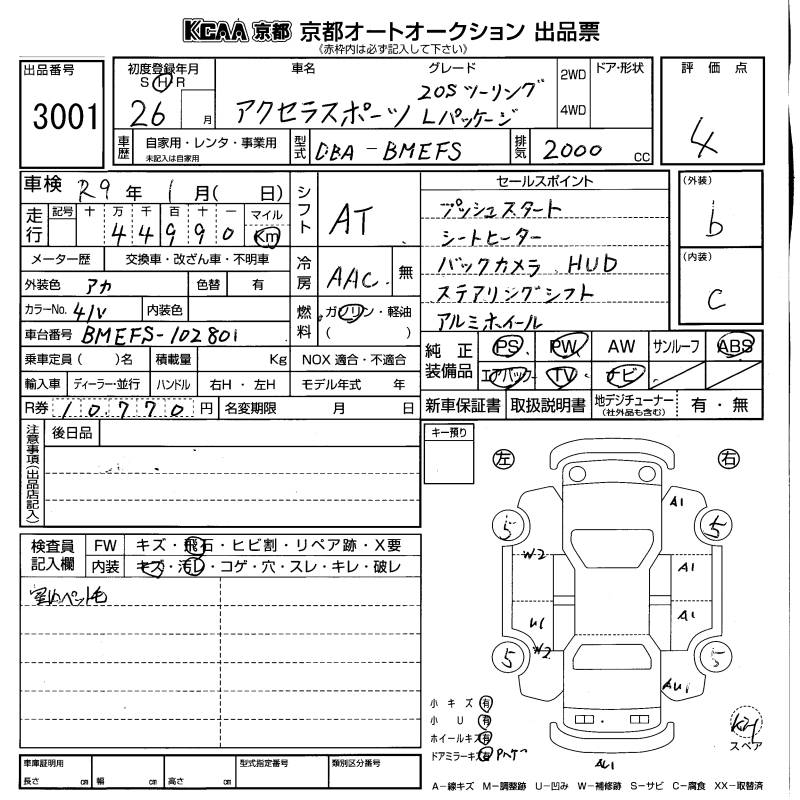 KCAA 京都 京都オートオークション 出品票
《赤枠内は必ず記入して下さい》
出品番号
3001
初度登録年月
S H R
26 月
車名
アクセラスポーツ
グレード
20S ツーリング
Lパッケージ
2WD
4WD
ドア・形状
評価点
4
車歴
自家用・レンタ・事業用
未記入は自家用
型式
DBA-BMEFS
排気
2000 CC
車検 R9 年 1 月( 日)
走行
記号 十 万 千 百 十 一 マイル
4 4 9 9 0 Km
メーター歴 交換車・改ざん車・不明車
外装色 アカ 色替 有
カラーNo. 41V 内装色
車台番号 BMEFS-102801
乗車定員 ( )名 積載量 Kg
輸入車 ディーラー・並行 ハンドル 右H・左H
R券 10,770 円 名変期限 月 日
シフト AT
冷房 AAC 無
燃料 ガソリン・軽油
( )
NOX 適合・不適合
モデル年式 年
セールスポイント
プッシュスタート
シートヒーター
バックカメラ HUD
ステアリングシフト
アルミホイール
(外装)
b
(内装)
C
純正装備品
PS PW AW サンルーフ ABS
エアバック TV ナビ
新車保証書 取扱説明書 地デジチューナー
(社外品も含む)
有・無
注意事項(出品店記入)
後日品
キー預り
検査員記入欄
FW キズ・飛石・ヒビ割・リペア跡・X要
内装 キズ・汚レ・コゲ・穴・スレ・キレ・破レ
室内ペット毛
左 右
A1
5 5
W2 A1
U1 A1
W2
5 5
AU1
小キズ 有
小U 有
ホイールキズ 有
ドアミラーキズ 有
AU1
スペア
車庫証明用
長さ cm 幅 cm 高さ cm
型式指定番号
類別区分番号
A-線キズ M-調整跡 U-凹み W-補修跡 S-サビ C-腐食 XX-取替済